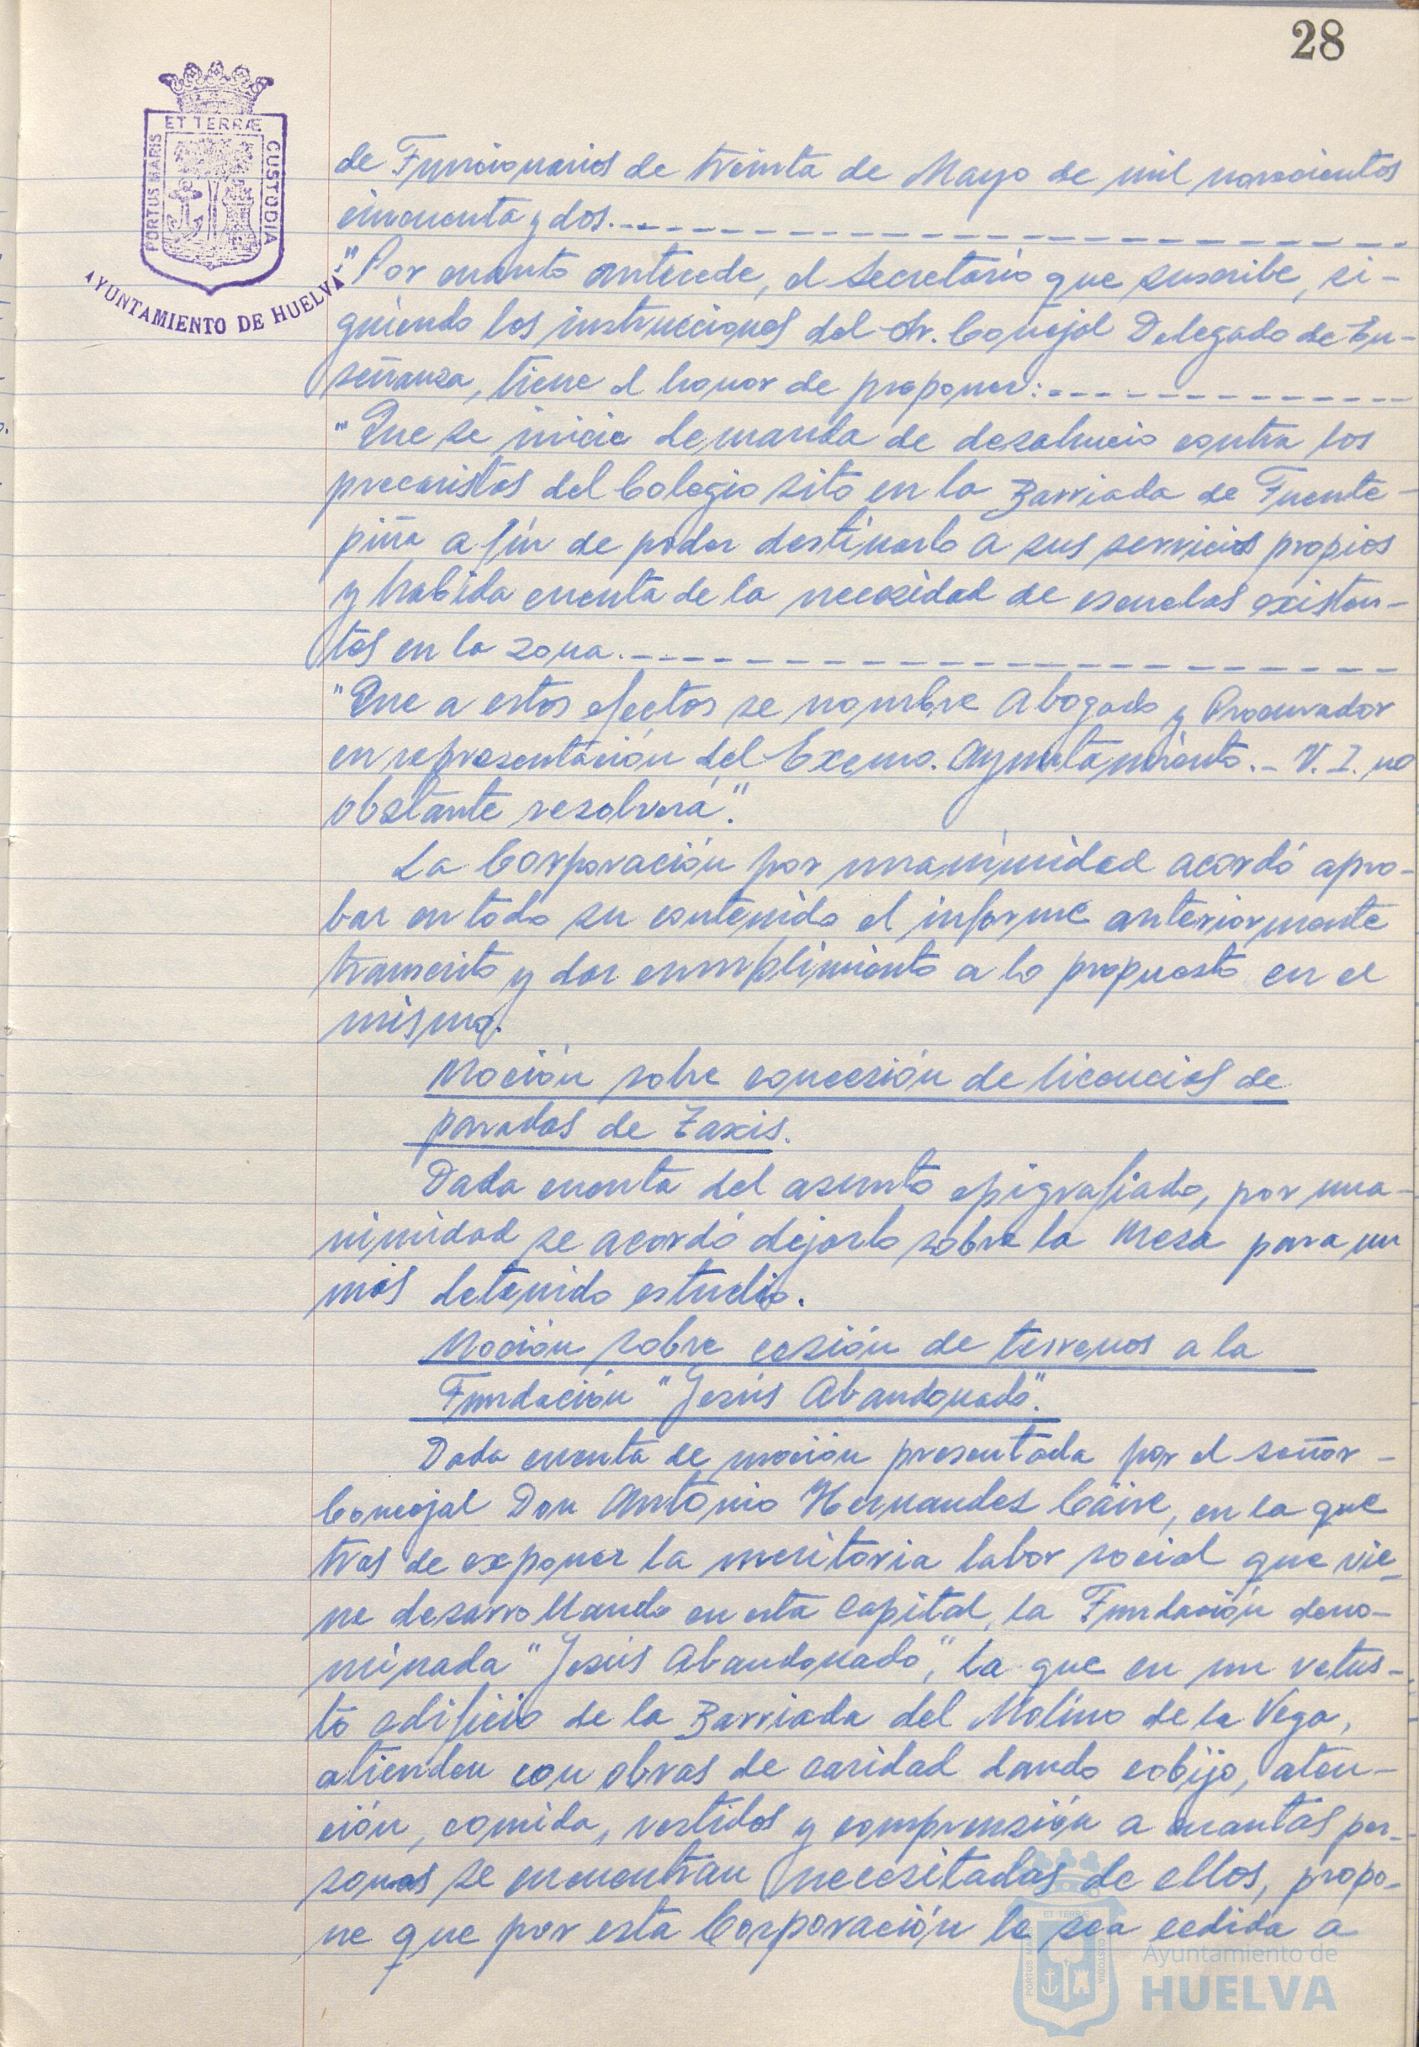 28
ET TERRÆ
PORTUS MARIS
CUSTODIA
AYUNTAMIENTO DE HUELVA
de Funcionarios de treinta de Mayo de mil novecientos
cincuenta y dos.
"Por cuanto antecede, el Secretario que suscribe, si-
guiendo las instrucciones del Sr. Concejal Delegado de En-
señanza, tiene el honor de proponer:
"Que se inicie demanda de desahucio contra los
precaristas del Colegio sito en la Barriada de Fuente-
piña a fin de poder destinarlo a sus servicios propios
y habida cuenta de la necesidad de escuelas existen-
tes en la zona.
"Que a estos efectos se nombre Abogado y Procurador
en representación del Excmo. Ayuntamiento.- V. I. no
obstante resolverá".
La Corporación por unanimidad acordó apro-
bar en todo su contenido el informe anteriormente
transcrito y dar cumplimiento a lo propuesto en el
mismo.
Moción sobre concesión de licencias de
paradas de Taxis.
Dada cuenta del asunto epigrafiado, por una-
nimidad se acordó dejarlo sobre la Mesa para un
más detenido estudio.
Moción sobre cesión de terrenos a la
Fundación "Jesús Abandonado".
Dada cuenta de moción presentada por el señor
Concejal Don Antonio Hernandez Caire, en la que
tras de exponer la meritoria labor social que vie-
ne desarrollando en esta Capital, la Fundación deno-
minada "Jesús Abandonado", la que en un vetus-
to edificio de la Barriada del Molino de la Vega,
atienden con obras de caridad dando cobijo, aten-
ción, comida, vestidos y comprensión a cuantas per-
sonas se encuentran necesitadas de ellos, propo-
ne que por esta Corporación le sea cedida a
Ayuntamiento de
HUELVA